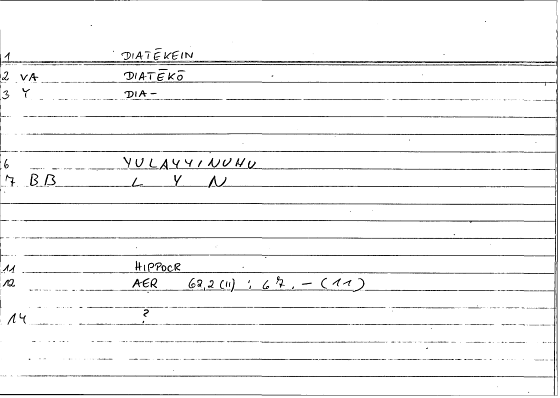 1 DIATĒKEIN
2 VA DIATĒKŌ
3 Y DIA-
6 YULAYYINUHU
7 BB L Y N
11 HIPPOCR
12 AER 62,2(11) : 67. - (11)
14 ?